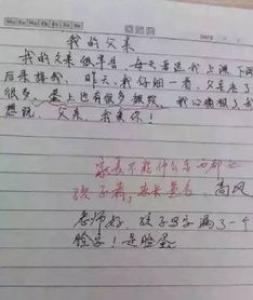 我的父亲
我的父亲很辛苦，每天要送我上课下网
后来接我，昨天，我仔细一看，父亲老了
很多，蛋上也有很多皱纹，我心痛极了我
想说，父亲，我爱你！
家长不能什么字都
孩子看，
高风
老师好 孩子写字漏了一个
脸字！是脸蛋